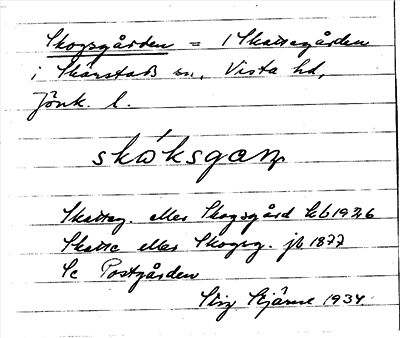 Skogsgården = 1 Skattegården
i Skärstads sn, Vista hd,
Jönk. l.
skóksgaɳ
Skatteg. eller Skogsgård kb 1926
Skatte eller Skogsg. jb 1877
Se Postgården
Stig Bjärme 1934